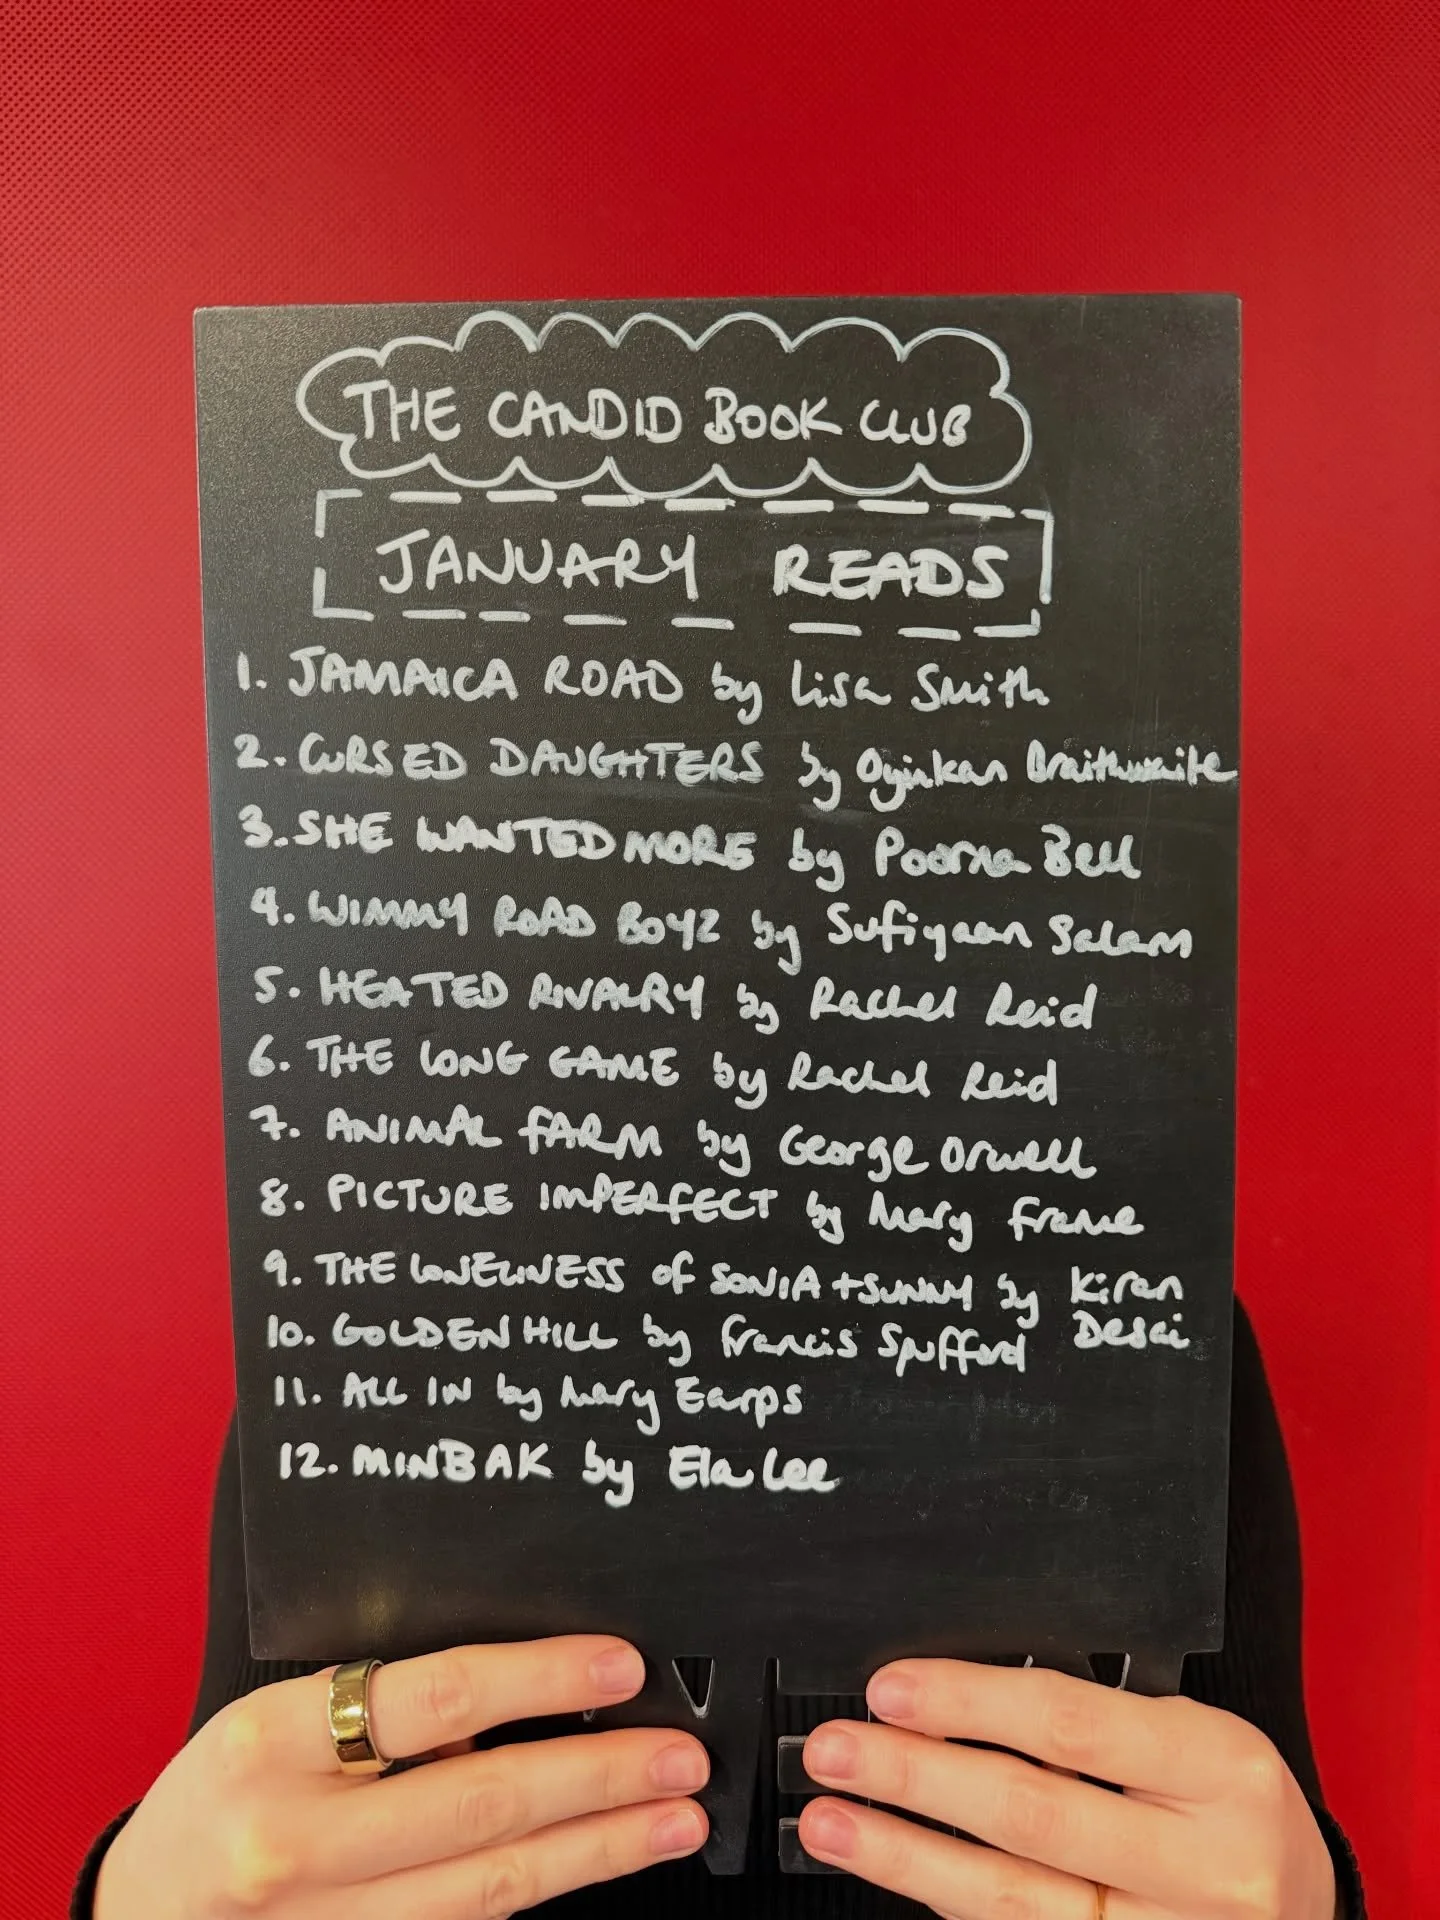 THE CANDID BOOK CLUB
JANUARY READS
1. JAMAICA ROAD by Lisa Smith
2. CURSED DAUGHTERS by Oyinkan Braithwaite
3. SHE WANTED MORE by Poorna Bell
4. WIMMY ROAD BOYZ by Sufiyaan Salam
5. HEATED RIVALRY by Rachel Reid
6. THE LONG GAME by Rachel Reid
7. ANIMAL FARM by George Orwell
8. PICTURE IMPERFECT by Mary Frame
9. THE LONELINESS of SONIA + SUNNY by Kiran
Desai
10. GOLDEN HILL by Francis Spufford
11. ALL IN by Mary Earps
12. MINBAK by Ela Lee